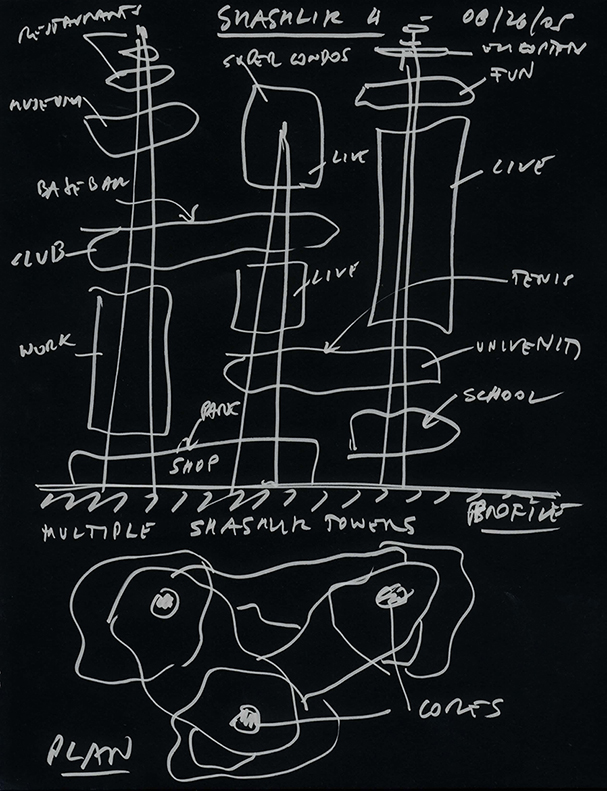 SHASHLIK 4
08/26/05
RESTAURANTS
SUPER CONDOS
FUN
MUSEUM
LIVE
LIVE
BASEBALL
CLUB
LIVE
TENIS
WORK
UNIVERSITY
SCHOOL
PARK
SHOP
PROFILE
MULTIPLE SHASHLIK TOWERS
CORES
PLAN